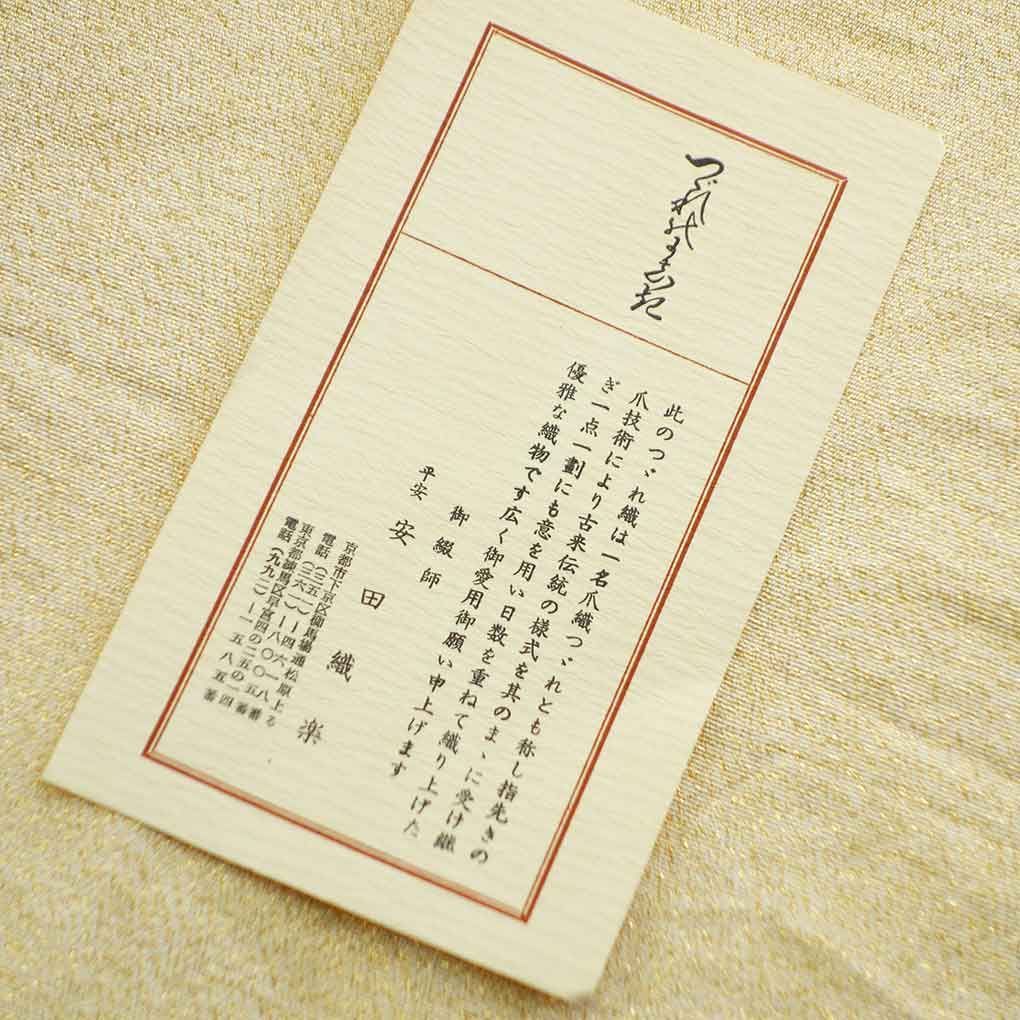 つゞれ
此のつゞれ織は一名爪織つゞれとも称し指先きの
爪技術により古来伝統の様式を其のまゝに受け継
ぎ一点一劃にも意を用い日数を重ねて織り上げた
優雅な織物です広く御愛用御願い申上げます
御綴師
平安 安田織楽
京都市下京区柳馬場通松原上る
電話
東京都練馬区早宮四の二五の一四
電話(九九二)ー一五八五番